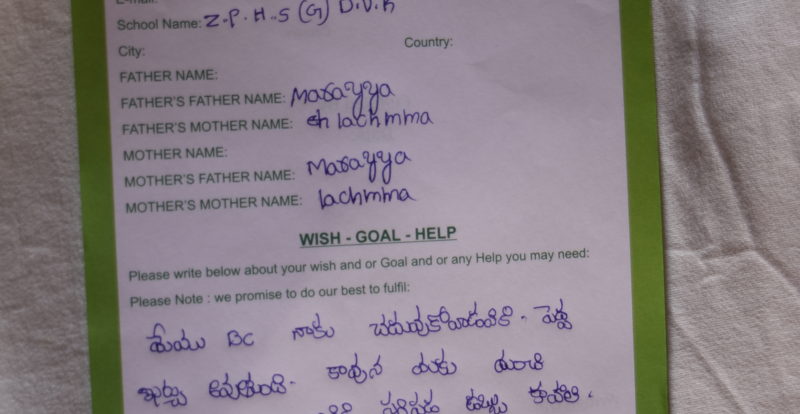 E-mail:
School Name: Z.P.H.S (G) D.V.K
City: Country:
FATHER NAME:
FATHER'S FATHER NAME: Marayya
FATHER'S MOTHER NAME: lachmma
MOTHER NAME:
MOTHER'S FATHER NAME: Marayya
MOTHER'S MOTHER NAME: lachmma
WISH - GOAL - HELP
Please write below about your wish and or Goal and or any Help you may need:
Please Note : we promise to do our best to fulfil:
మేము BC నాకు పెద్ద
ఖర్చు అవుతుంది. కావున మాకు
కావాలి.